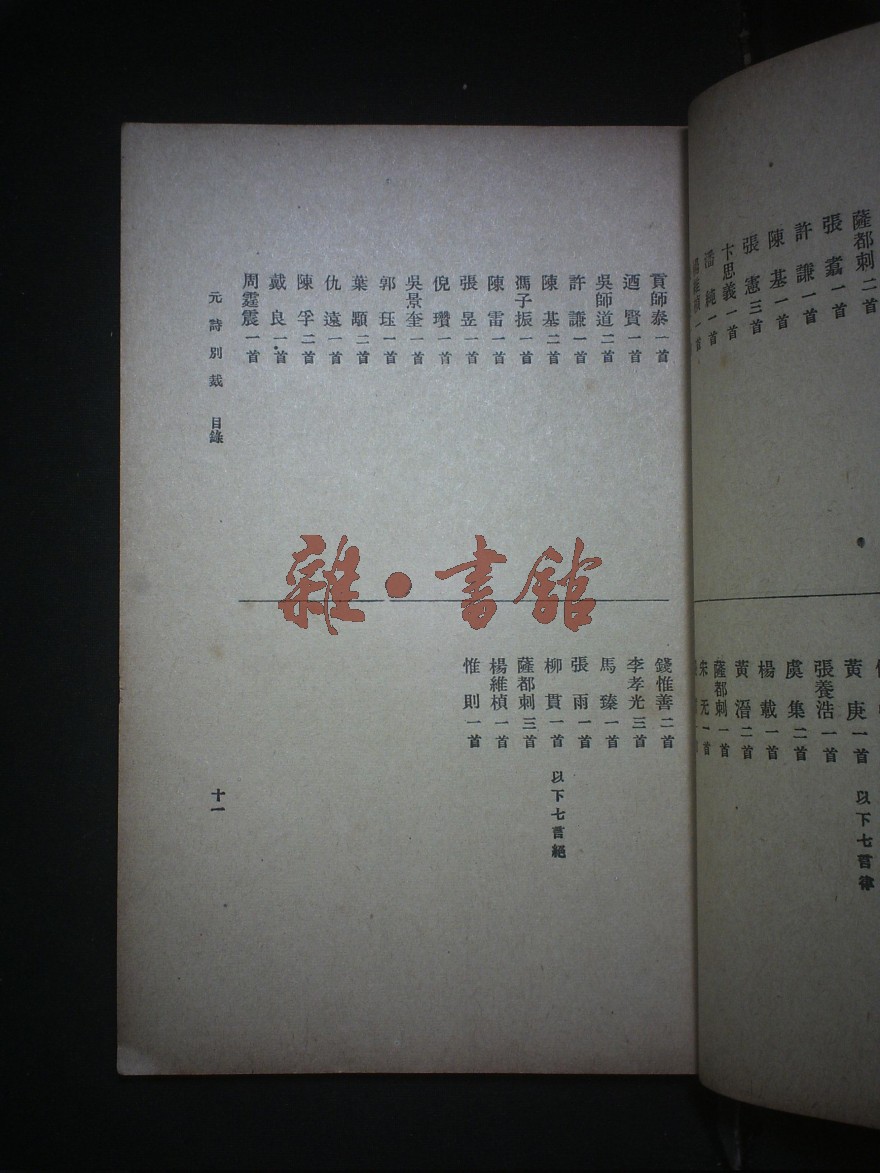 薩都刺 二首
張翥 一首
許謙 一首
陳基 一首
張憲 三首
卞思義 一首
潘純 一首
黃庚 一首 以下七言律
張養浩 一首
虞集 二首
楊載 一首
黃溍 二首
薩都刺 一首
宋无 一首
貢師泰 一首
迺賢 一首
吳師道 二首
許謙 一首
陳基 二首
馮子振 一首
陳雷 一首
張昱 一首
倪瓚 一首
吳景奎 一首
郭珏 一首
葉顒 二首
仇遠 一首
陳孚 二首
戴良 一首
周霆震 一首
錢惟善 二首
李孝光 三首
馬臻 一首
張雨 一首
柳貫 一首 以下七言絕
薩都刺 三首
楊維楨 一首
惟則 一首
元詩別裁 目錄
十一
雜·書館